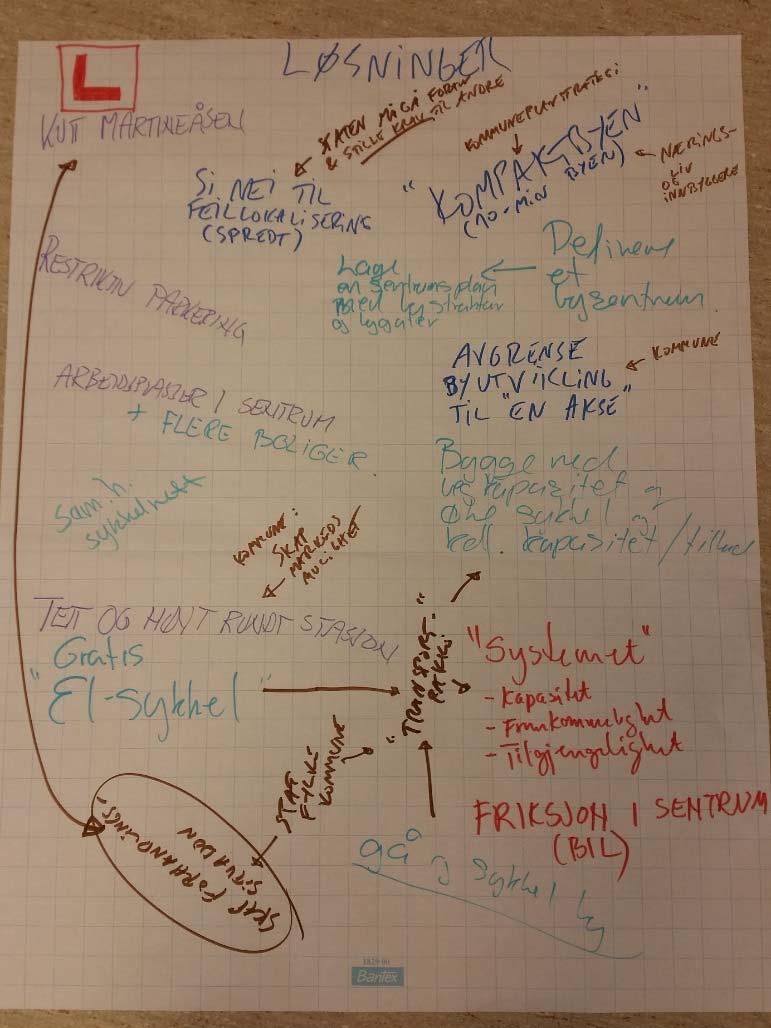 L
LØSNINGER
KUTT MARTINEÅSEN
STATEN MÅ GÅ FORAN
& STILLE KRAV TIL ANDRE
KOMMUNEPLANSTRATEGI
SI NEI TIL
FEILLOKALISERING
(SPREDT)
"KOMPAKTBYEN"
(10-MIN BYEN)
NÆRINGS-
LIV
OG
INNBYGGERE
RESTRIKTIV PARKERING
Lage
en sentrumsplan
med bystruktur
og bygater
Definere
et
bysentrum.
AVGRENSE
BYUTVIKLING
TIL "EN AKSE"
KOMMUNE
ARBEIDSPLASSER I SENTRUM
+ FLERE BOLIGER
Bygge ned
vegkapasitet og
øke sykkel og
koll. kapasitet/tilbud
sam.h.
sykkelnett
KOMMUNE:
SKAP
MARKEDS
MULIGHET
TETT OG HØYT RUNDT STASJON
Gratis
"El-sykkel"
"TRANSPORT-
PAKKE"
"Systemet"
- Kapasitet
- Framkommelighet
- Tilgjengelighet
STAT
FYLKE
KOMMUNE
FRIKSJON I SENTRUM
(BIL)
SKAP FORHANDLINGS-
SITUASJON
gå og sykkel by
1829 00
Bantex